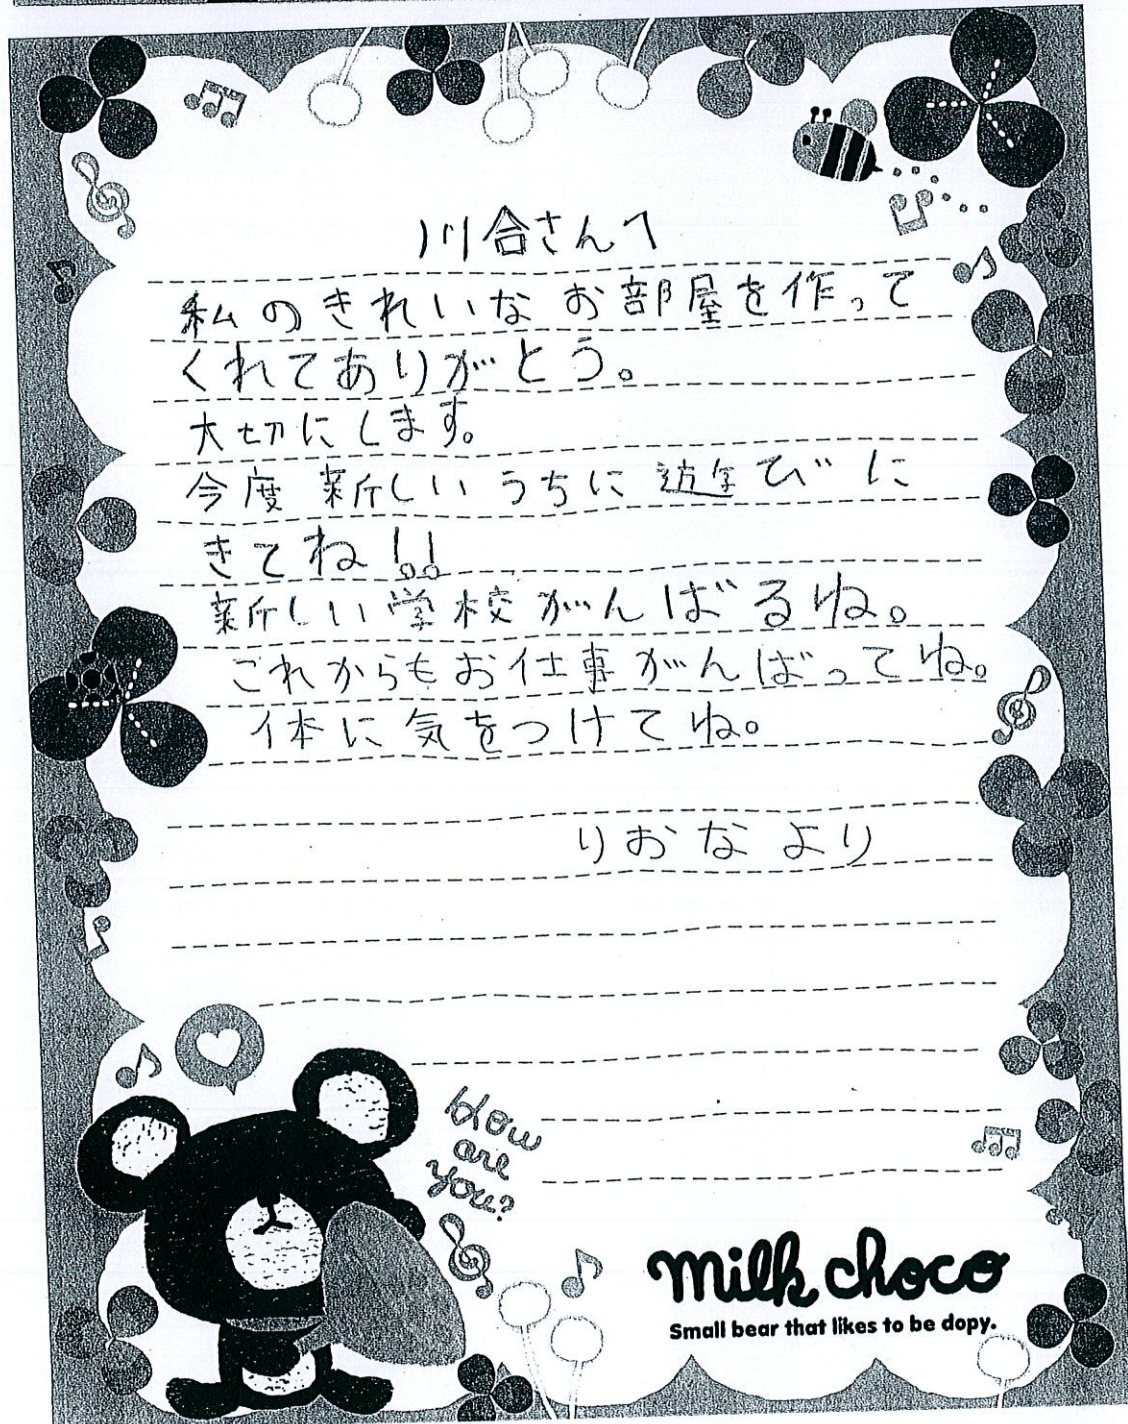 川合さんへ
私のきれいなお部屋を作って
くれてありがとう。
大切にします。
今度新しいうちに遊びに
きてね!!
新しい学校がんばるね。
これからもお仕事がんばってね。
体に気をつけてね。
りおなより
How
are
you?
milk choco
Small bear that likes to be dopy.